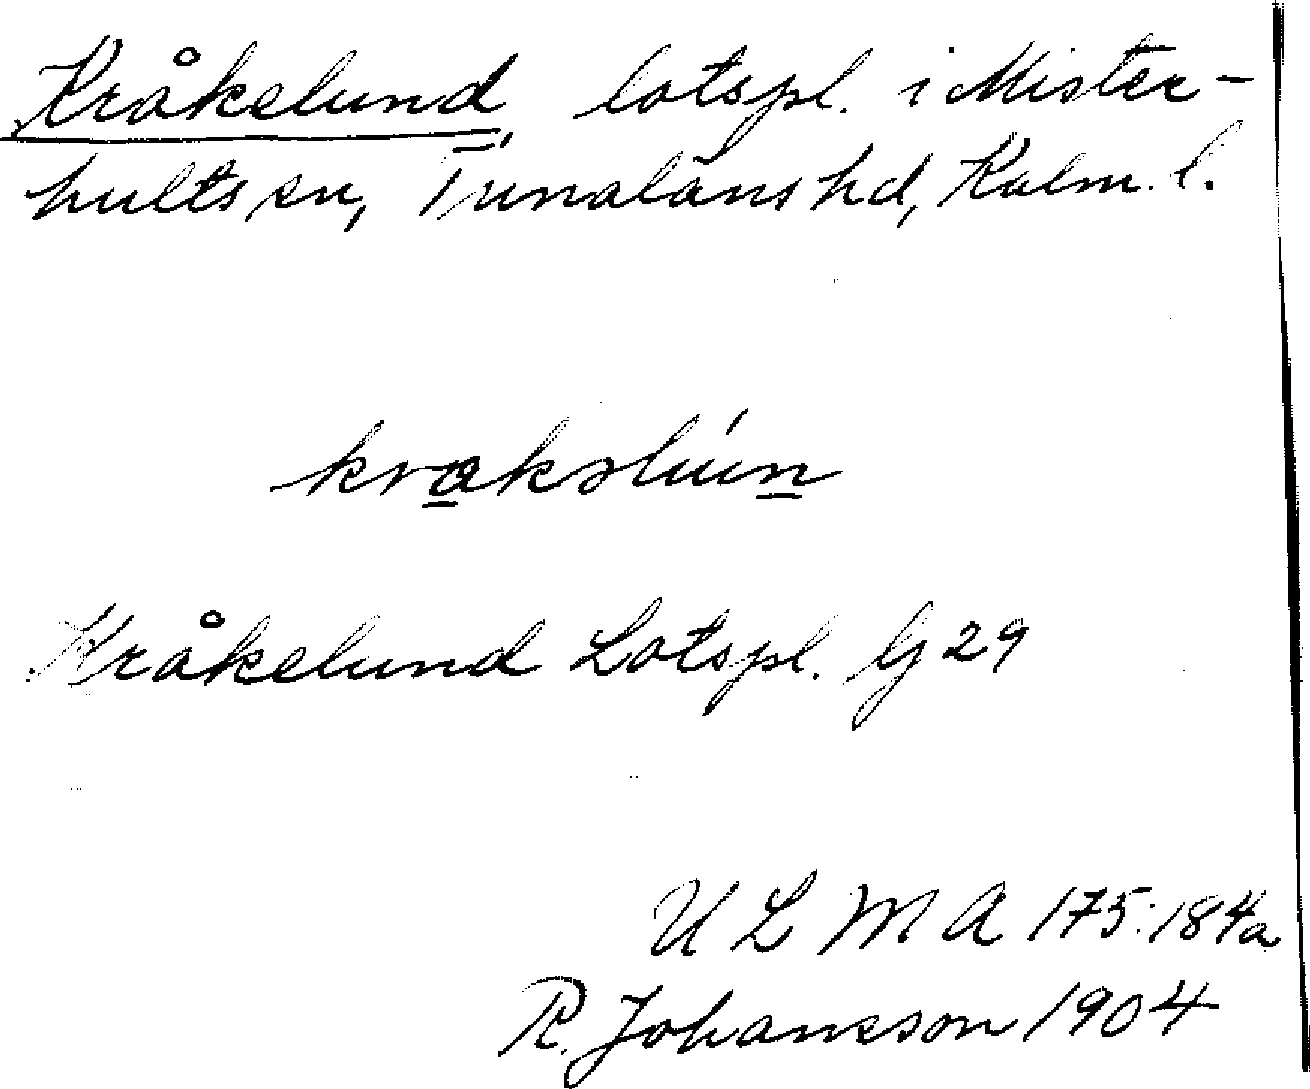 Kråkelund, lotspl. i Mister-
hults sn, Tunaläns hd, Kalm. l.
krakəlún
Kråkelund Lotspl. Gj 29
U L M A 175:184a
R. Johansson 1904